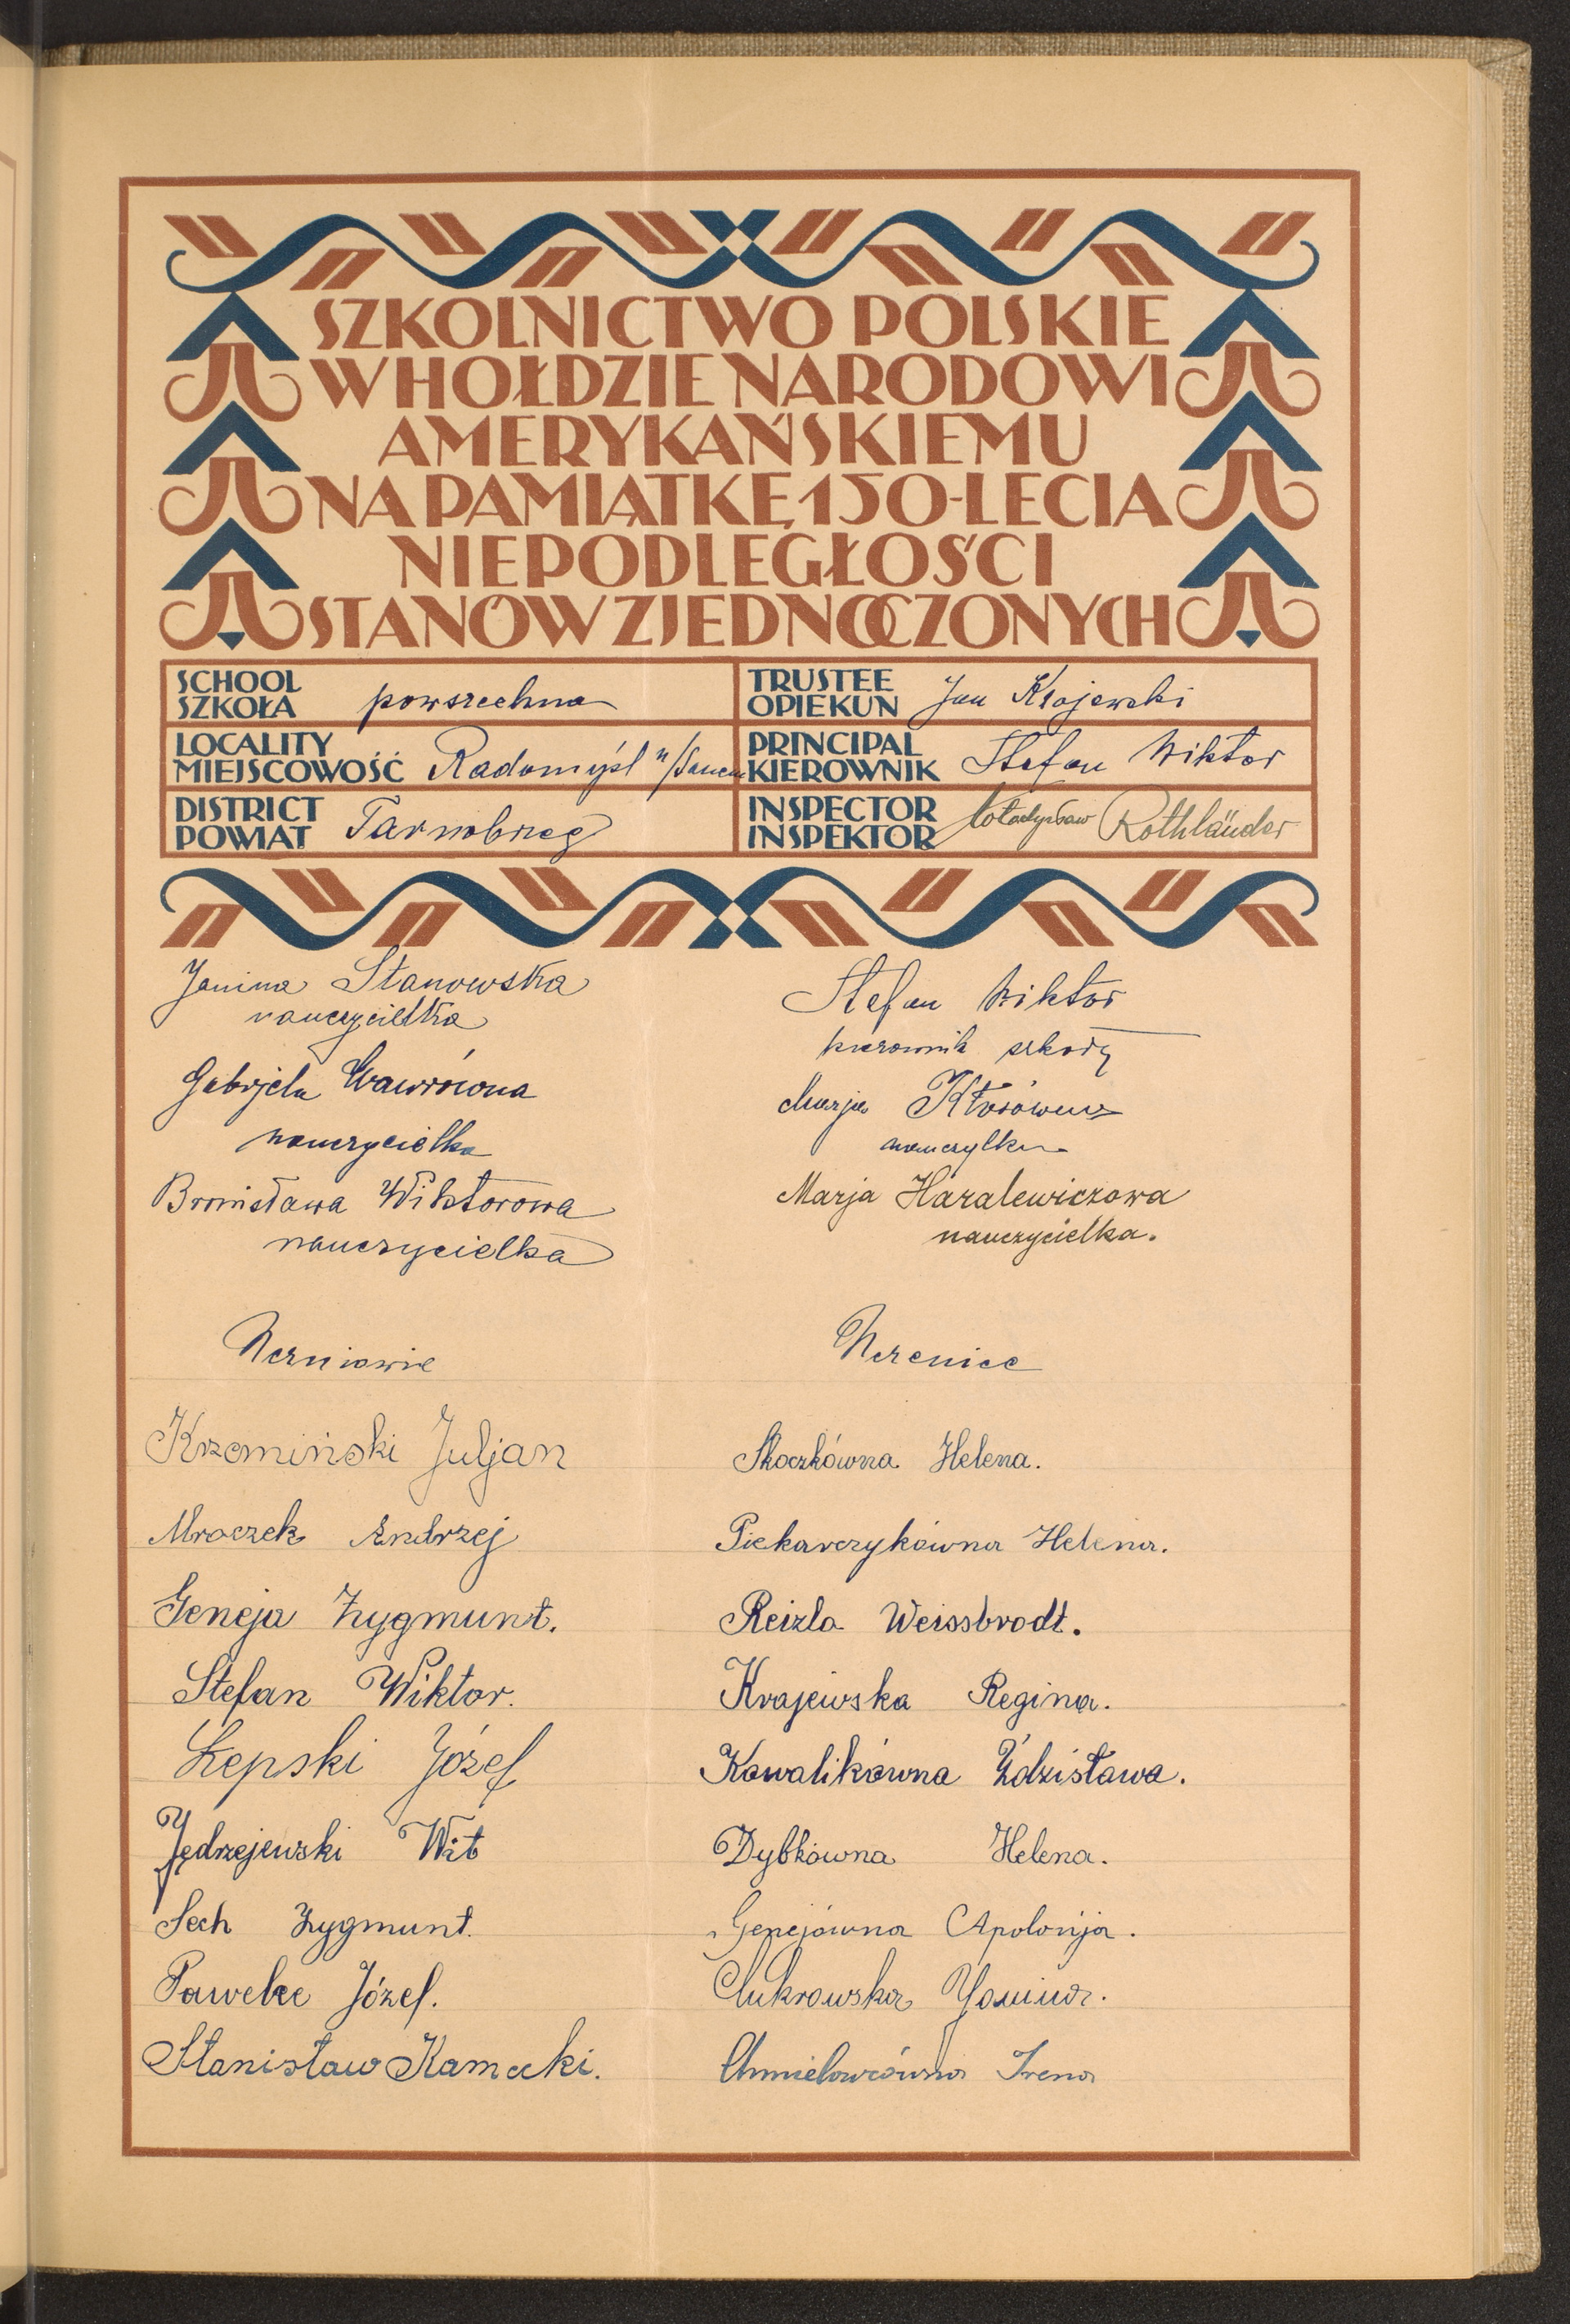 SZKOLNICTWO POLSKIE
W HOŁDZIE NARODOWI
AMERYKAŃSKIEMU
NA PAMIĄTKĘ 150-LECIA
NIEPODLEGŁOŚCI
STANÓW ZJEDNOCZONYCH
SCHOOL
SZKOŁA powszechna
TRUSTEE
OPIEKUN Jan Krajewski
LOCALITY
MIEJSCOWOŚĆ Radomyśl n/Sanem
PRINCIPAL
KIEROWNIK Stefan Wiktor
DISTRICT
POWIAT Tarnobrzeg
INSPECTOR
INSPEKTOR Władysław Rothländer
Janina Stanowska
nauczycielka
Gabrjela Wawrówna
nauczycielka
Bronisława Wiktorowa
nauczycielka
Stefan Wiktor
kierownik szkoły
Marja Kłosówna
nauczylka
Marja Haralewiczowa
nauczycielka.
Uczniowie
Krzemiński Juljan
Mroczek Andrzej
Geneja Zygmunt.
Stefan Wiktor.
Łepski Józef
Jędrzejewski Wit
Sech Zygmunt.
Pawelec Józef.
Stanisław Kamecki.
Uczenice
Skoczkówna Helena.
Piekarczykówna Helena.
Reizla Weissbrodt.
Krajewska Regina.
Kowalikówna Zdzisława.
Dybkówna Helena.
Genejówna Apolonja.
Cukrowska Janina.
Chmielowcówna Irena